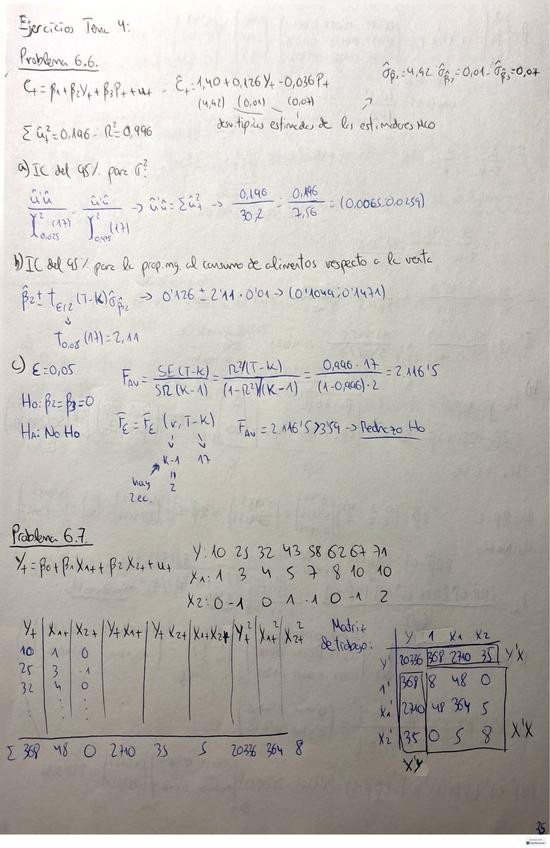 Ejercicios Tema 4:
Problema 6.6.
Ct = β1 + β2Yt + β3Pt + ut - Ĉt = 1,40 + 0,126Yt - 0,036Pt σ̂β̂1 = 4,92 - σ̂β̂2 = 0,01 - σ̂β̂3 = 0,07
(4,92) (0,01) (0,07)
desv. típicas estimadas de los estimadores MCO
Σût² = 0,196 - R² = 0,996
a) IC del 95% para σ².
û'û / χ²0,025 (17) - û'û / χ²0,975 (17) → û'û = Σût² → 0,196 / 30,2 - 0,196 / 7,56 = (0,0065; 0,0259)
b) IC del 95% para la prop. mg. al consumo de alimentos respecto a la renta
β̂2 ± tε/2 (T-K) σ̂β̂2 → 0'126 ± 2'11 · 0'01 → (0'1049; 0'1471)
↓
t0,05 (17) = 2,11
c) ε = 0,05 FAV = SE(T-K) / SR(K-1) = R²(T-K) / (1-R²)(K-1) = 0,996 · 17 / (1-0,996) · 2 = 2116'5
H0: β2 = β3 = 0 Fε = Fε (r, T-K) FAV = 2116'5 > 3'59 → Rechazo H0
HA: No H0
K-1 17
"
2
hay 2 ec.
Problema 6.7.
Yt = β0 + β1X1t + β2X2t + ut
Y: 10 25 32 43 58 62 67 71
X1: 1 3 4 5 7 8 10 10
X2: 0 -1 0 1 -1 0 -1 2
Yt X1t X2t YtX1t YtX2t X1tX2t Yt² X1t² X2t²
10 1 0
25 3 -1
32 4 0
Σ 368 48 0 2710 35 5 20336 364 8
Matriz de trabajo:
Y 1 X1 X2
Y' 20336 368 2710 35 Y'X
1' 368 8 48 0
X1' 2710 48 364 5
X2' 35 0 5 8 X'X
X'Y
35